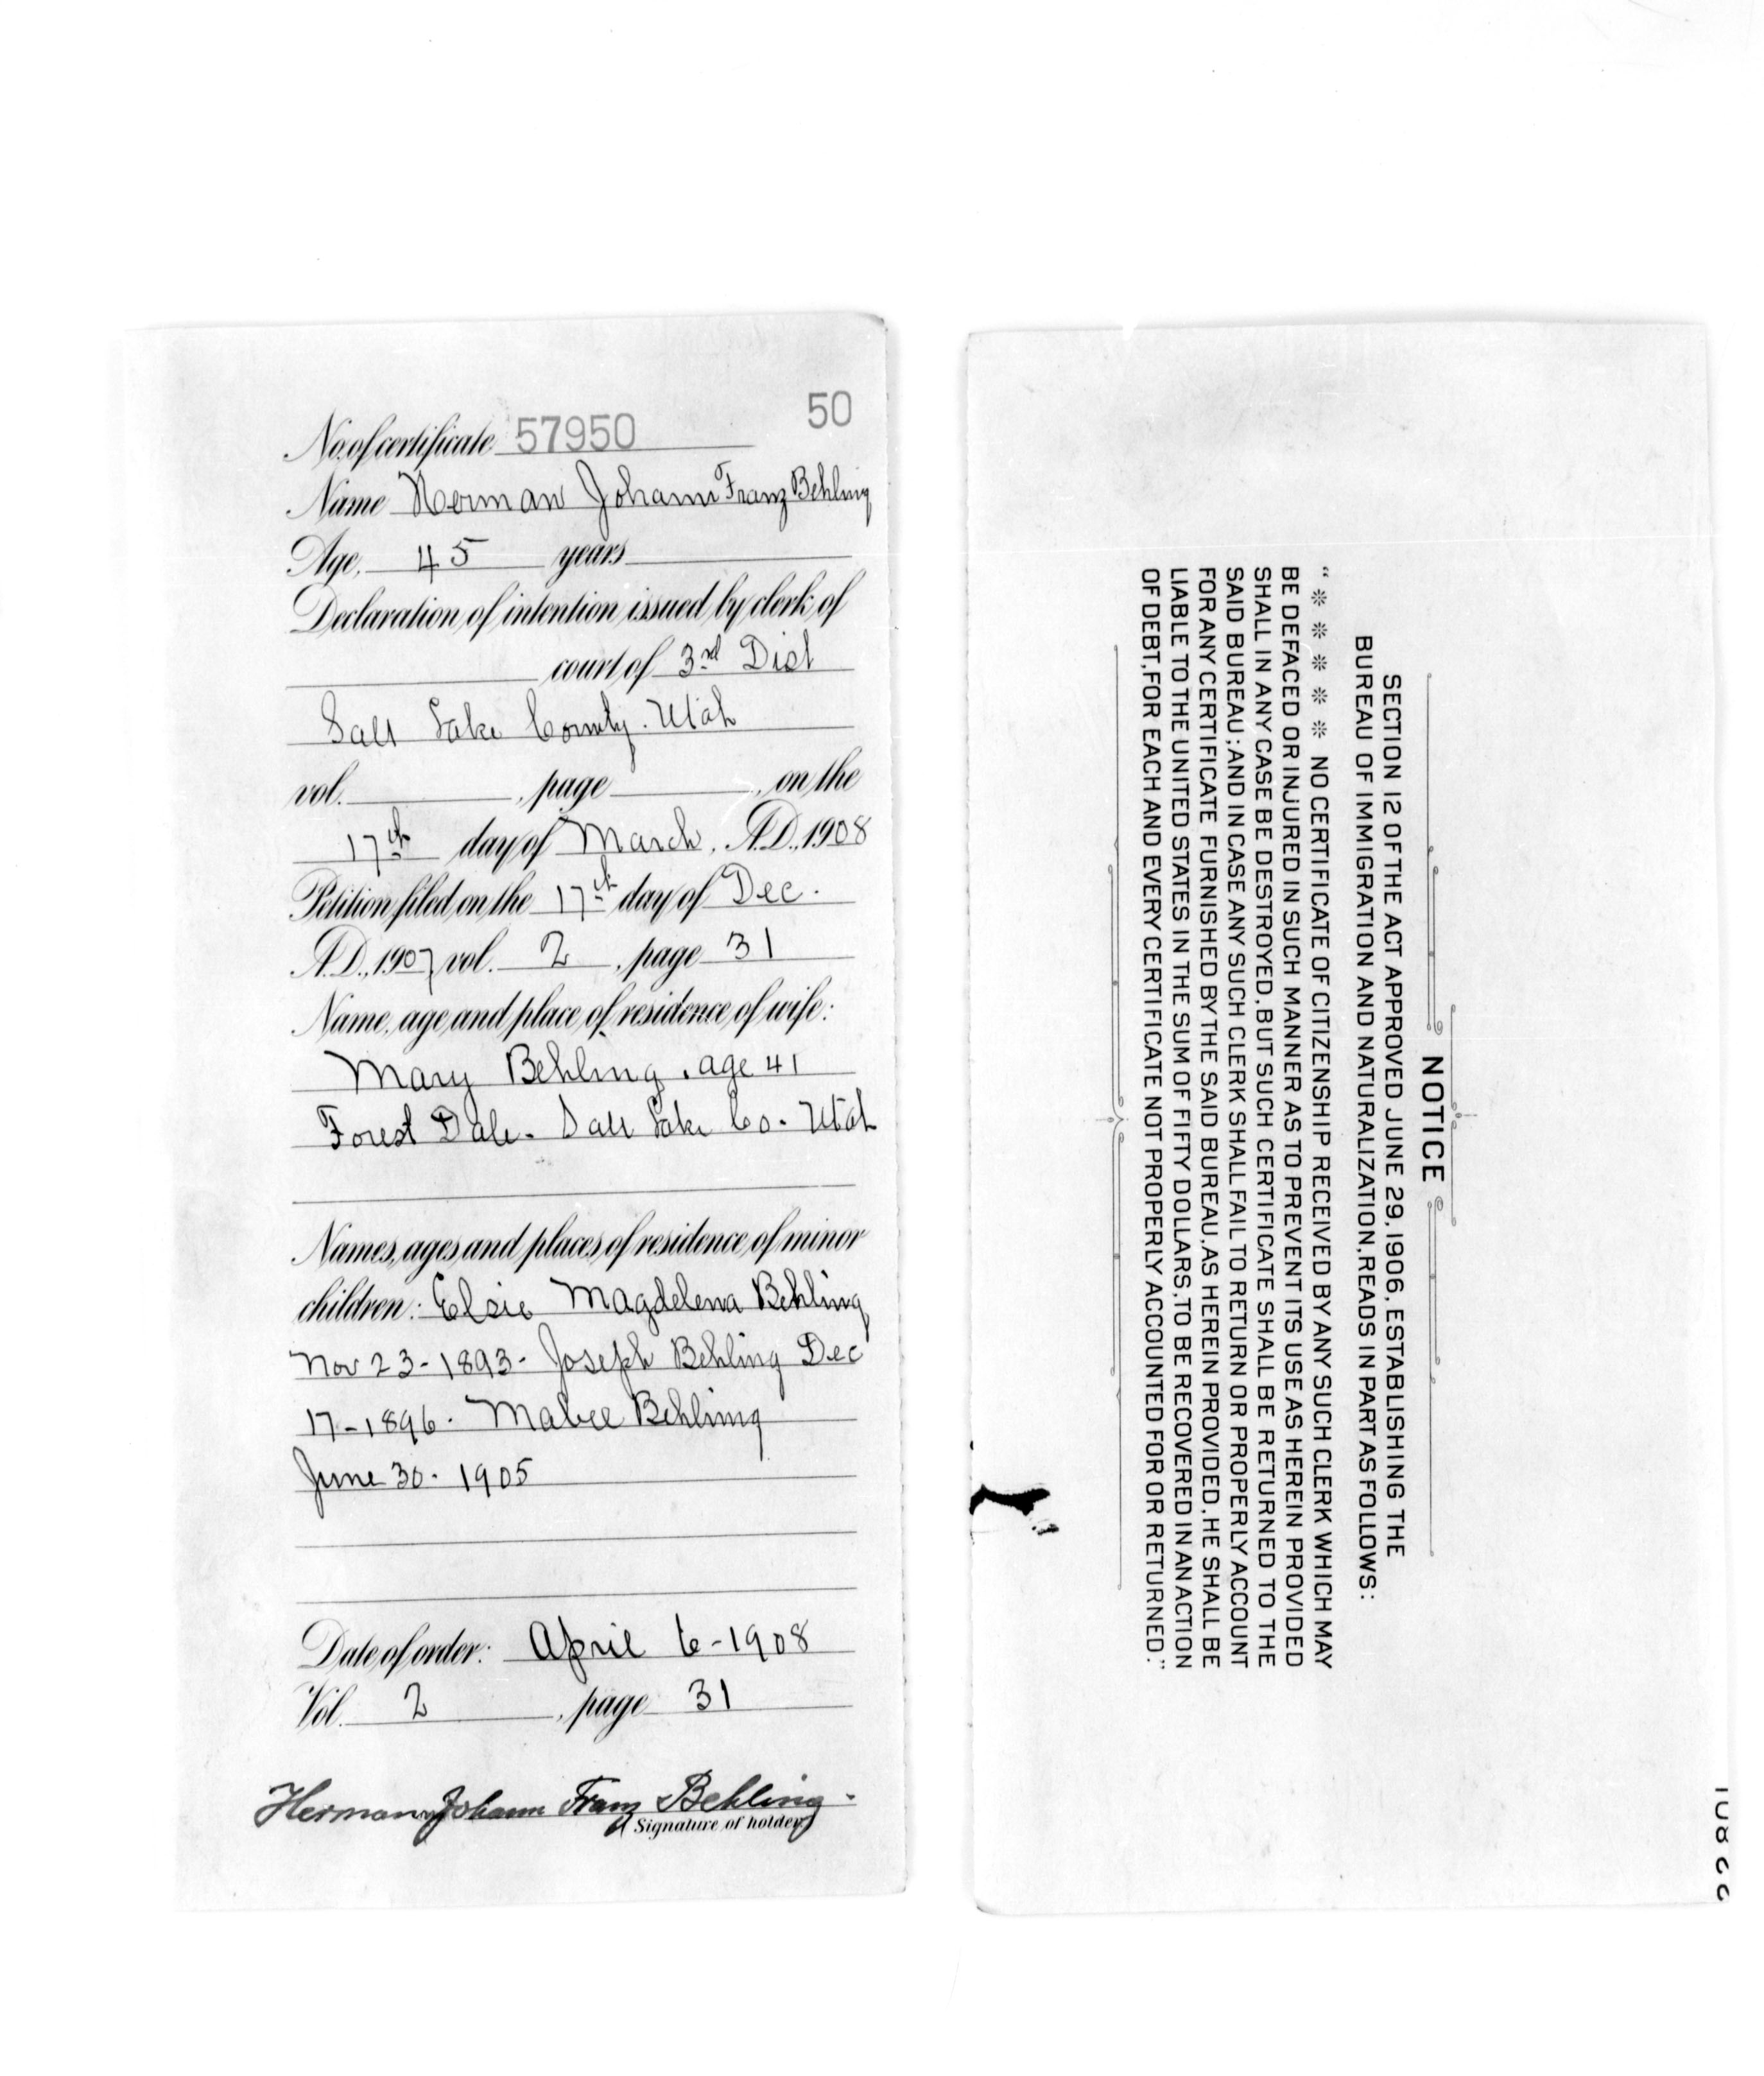 50
No. of certificate 57950
Name Herman Johann Franz Behling
Age, 45 years
Declaration of intention issued by clerk of
court of 3rd Dist
Salt Lake County. Utah
vol. , page , on the
17th day of March, A.D., 1908
Petition filed on the 17th day of Dec.
A.D., 1907 vol. 2, page 31
Name, age and place of residence of wife:
Mary Behling. age 41
Forest Dale- Salt Lake Co. Utah
Names, ages and places of residence of minor
children: Elsie Magdelena Behling
Nov 23-1893- Joseph Behling Dec
17-1896. Mabel Behling
June 30- 1905
Date of order: April 6-1908
Vol. 2, page 31
Herman Johann Franz Behling.
Signature of holder
NOTICE
SECTION 12 OF THE ACT APPROVED JUNE 29, 1906, ESTABLISHING THE
BUREAU OF IMMIGRATION AND NATURALIZATION, READS IN PART AS FOLLOWS:
"※ ※ ※ ※ ※ NO CERTIFICATE OF CITIZENSHIP RECEIVED BY ANY SUCH CLERK WHICH MAY
BE DEFACED OR INJURED IN SUCH MANNER AS TO PREVENT ITS USE AS HEREIN PROVIDED
SHALL IN ANY CASE BE DESTROYED, BUT SUCH CERTIFICATE SHALL BE RETURNED TO THE
SAID BUREAU; AND IN CASE ANY SUCH CLERK SHALL FAIL TO RETURN OR PROPERLY ACCOUNT
FOR ANY CERTIFICATE FURNISHED BY THE SAID BUREAU, AS HEREIN PROVIDED, HE SHALL BE
LIABLE TO THE UNITED STATES IN THE SUM OF FIFTY DOLLARS, TO BE RECOVERED IN AN ACTION
OF DEBT, FOR EACH AND EVERY CERTIFICATE NOT PROPERLY ACCOUNTED FOR OR RETURNED."